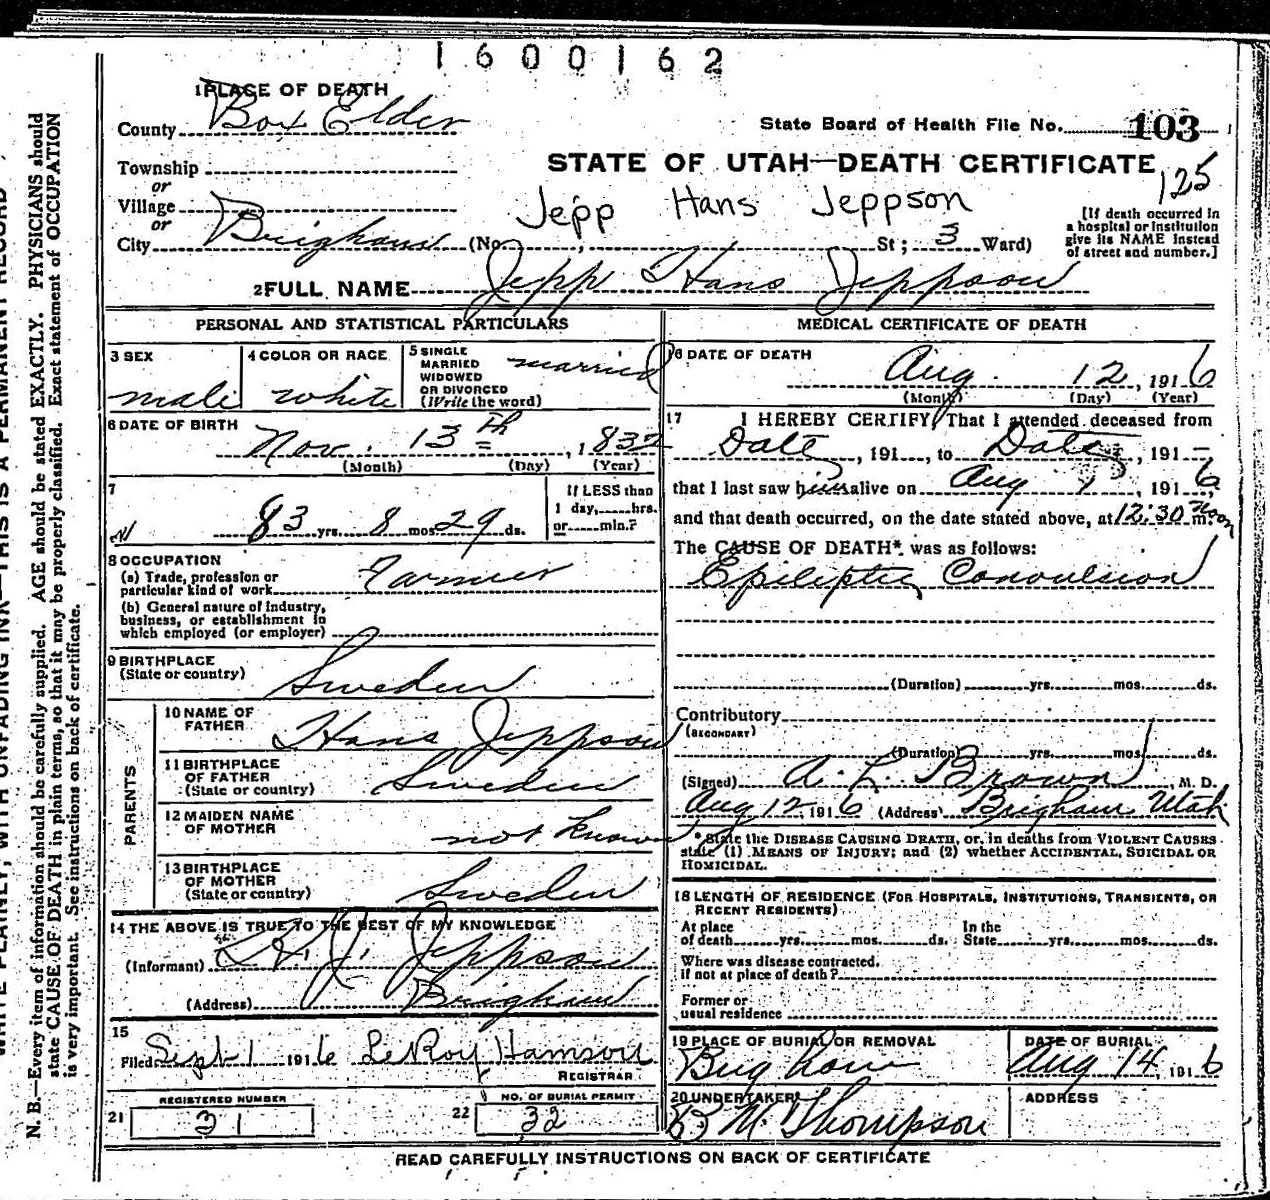 1600162
1 PLACE OF DEATH
County Box Elder
State Board of Health File No. 103
Township
or
STATE OF UTAH—DEATH CERTIFICATE
125
Village
or
Jepp Hans Jeppson
City Brigham (No. , St; 3 Ward)
[If death occurred in
a hospital or institution
give its NAME instead
of street and number.]
2 FULL NAME Jepp Hans Jeppson
PERSONAL AND STATISTICAL PARTICULARS
3 SEX
male
4 COLOR OR RACE
white
5 SINGLE
MARRIED
WIDOWED
OR DIVORCED
(Write the word)
married
6 DATE OF BIRTH
Nov. 13th, 1832
(Month) (Day) (Year)
7
83 yrs. 8 mos. 29 ds.
If LESS than
1 day, hrs.
or min.?
8 OCCUPATION
(a) Trade, profession or
particular kind of work Farmer
(b) General nature of industry,
business, or establishment in
which employed (or employer)
9 BIRTHPLACE
(State or country) Sweden
PARENTS
10 NAME OF
FATHER Hans Jeppson
11 BIRTHPLACE
OF FATHER
(State or country) Sweden
12 MAIDEN NAME
OF MOTHER not known
13 BIRTHPLACE
OF MOTHER
(State or country) Sweden
14 THE ABOVE IS TRUE TO THE BEST OF MY KNOWLEDGE
(Informant) J. Jeppson
(Address) Brigham
15
Filed Sept 1 1916 LeRoy
REGISTRAR
REGISTERED NUMBER
21 31
NO. OF BURIAL PERMIT
22 32
MEDICAL CERTIFICATE OF DEATH
16 DATE OF DEATH
Aug. 12, 1916
(Month) (Day) (Year)
17 I HEREBY CERTIFY, That I attended deceased from
Date, 191 , to Date, 191
that I last saw him alive on Aug 1916,
and that death occurred, on the date stated above, at 12:30 m. Noon
The CAUSE OF DEATH* was as follows:
Epileptic Convulsion
(Duration) yrs. mos. ds.
Contributory
(SECONDARY)
(Duration) yrs. mos. ds.
(Signed) A. L. Brown, M. D.
Aug 12, 1916 (Address) Brigham Utah
* State the DISEASE CAUSING DEATH, or, in deaths from VIOLENT CAUSES
state (1) MEANS OF INJURY; and (2) whether ACCIDENTAL, SUICIDAL OR
HOMICIDAL.
18 LENGTH OF RESIDENCE (FOR HOSPITALS, INSTITUTIONS, TRANSIENTS, OR
RECENT RESIDENTS)
At place
of death yrs. mos. ds.
In the
State yrs. mos. ds.
Where was disease contracted.
if not at place of death?
Former or
usual residence
19 PLACE OF BURIAL OR REMOVAL
Brigham
DATE OF BURIAL
Aug 14, 1916
20 UNDERTAKER
B M. Thompson
ADDRESS
READ CAREFULLY INSTRUCTIONS ON BACK OF CERTIFICATE
WRITE PLAINLY, WITH UNFADING INK—THIS IS A PERMANENT RECORD
N. B.—Every item of information should be carefully supplied. AGE should be stated EXACTLY. PHYSICIANS should
state CAUSE OF DEATH in plain terms, so that it may be properly classified. Exact statement of OCCUPATION
is very important. See instructions on back of certificate.